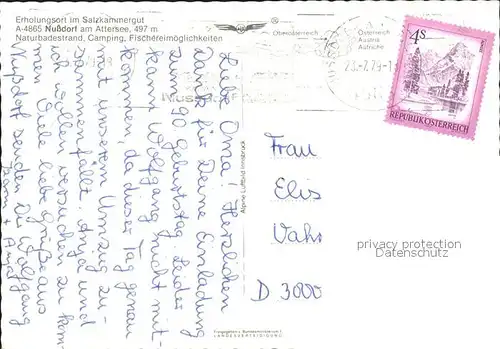 Erholungsort im Salzkammergut
A-4865 Nußdorf am Attersee, 497 m
Naturbadestrand, Camping, Fischereimöglichkeiten
Oberösterreich
Österreich
Austria
Autriche
23.-7.79-1
4S
REPUBLIK ÖSTERREICH
Liebe Oma! Herzlichen
Dank für Deine Einladung
zum 90. Geburtstag. Leider
kann Wolfgang nicht mit-
kommen, da dieser Tag genau
mit unserem Umzug zu-
sammenfällt. Anja und
ich wollen versuchen zu kom-
men. Viele liebe Grüße aus
Nußdorf senden Dir Wolfgang
Alpine Luftbild Innsbruck
Frau
Elis
Vahs
D 3000
privacy protection
Datenschutz
LANDESVERTEIDIGUNG